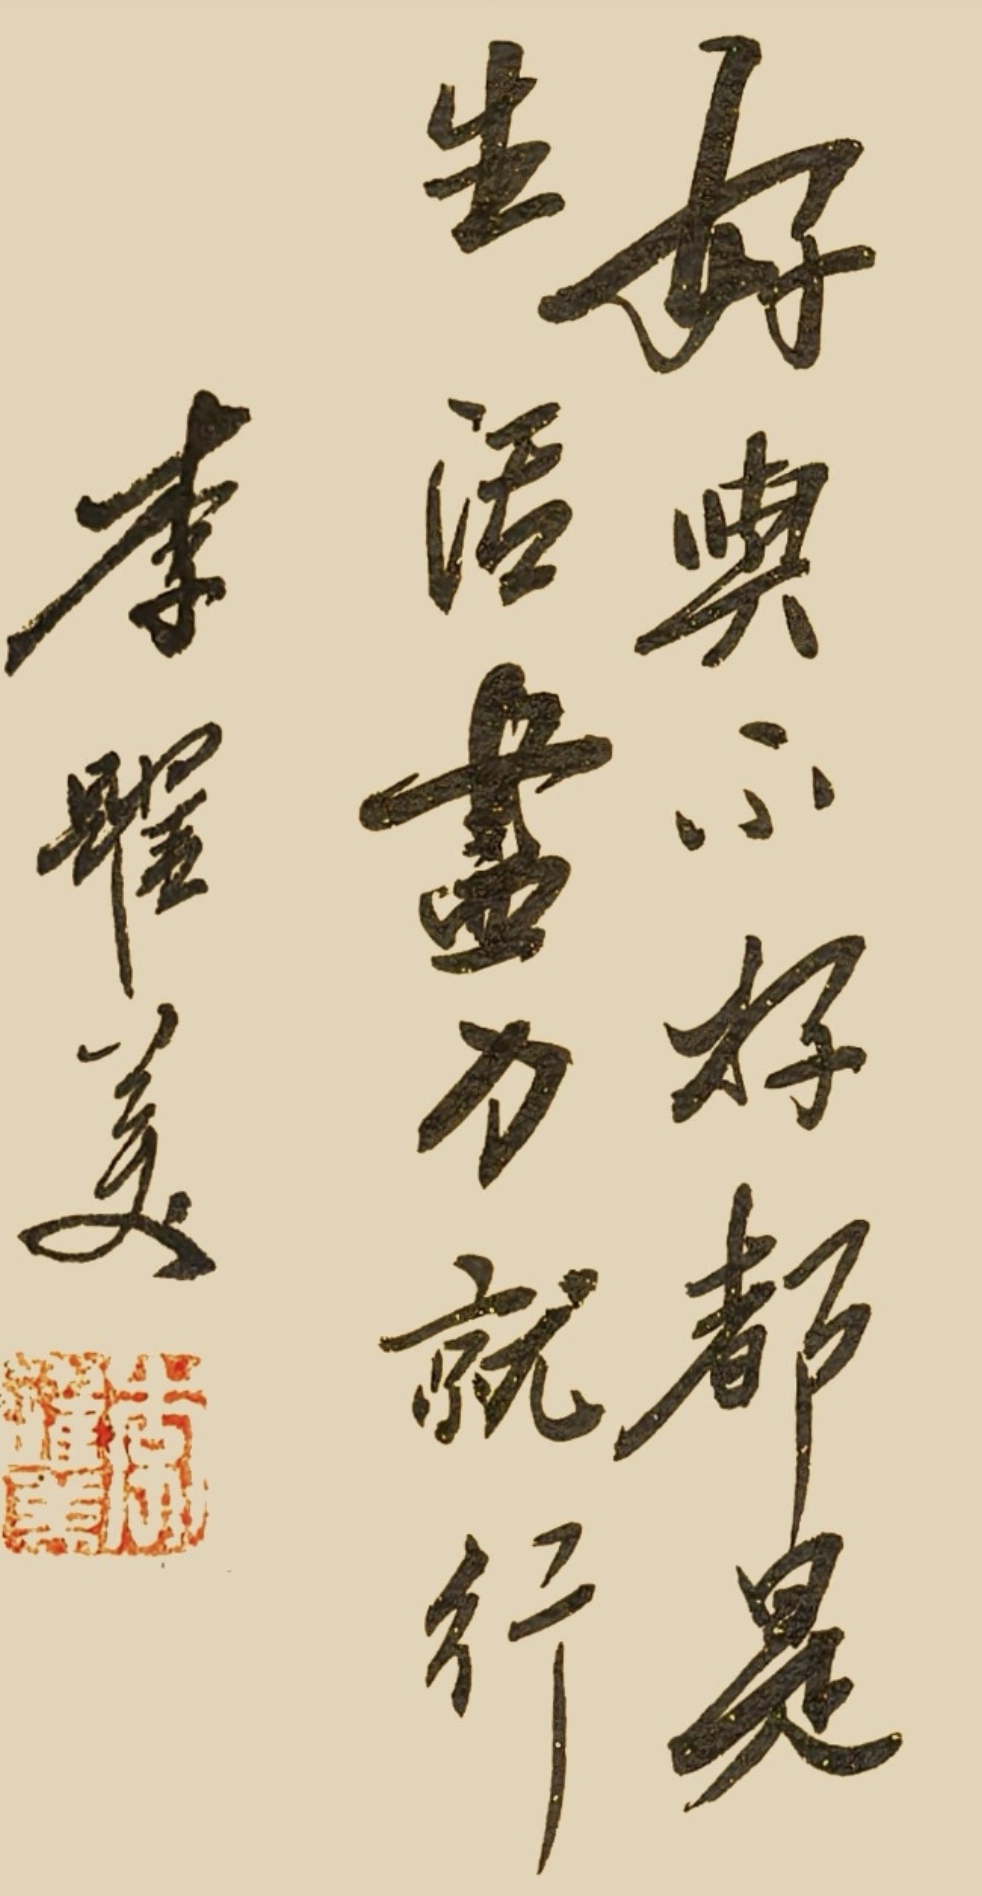 好與不好都是
生活盡力就行
李躍美